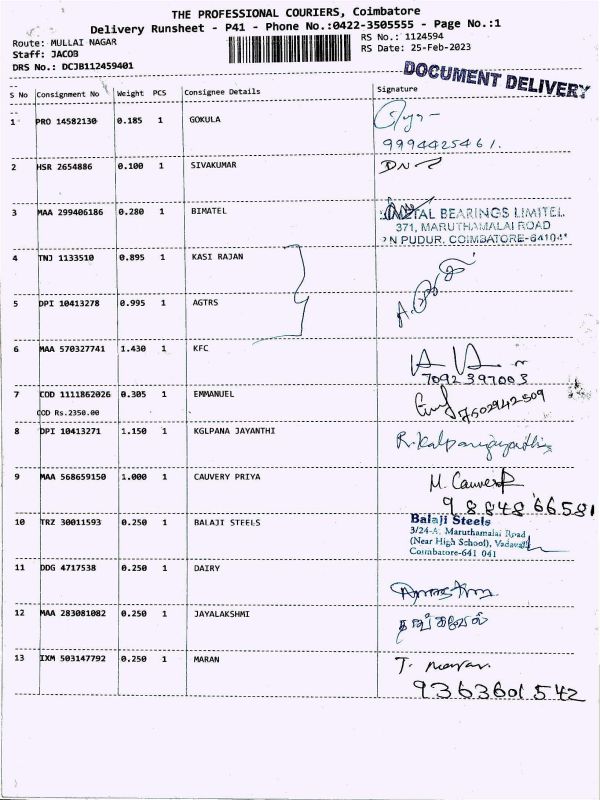 THE PROFESSIONAL COURIERS, Coimbatore
Delivery Runsheet - P41 - Phone No.:0422-3505555 - Page No.:1
Route: MULLAI NAGAR
RS No.: 1124594
Staff: JACOB
RS Date: 25-Feb-2023
DRS No.: DCJB112459401
DOCUMENT DELIVERY
S No Consignment No Weight PCS Consignee Details Signature
1 PRO 14582130 0.185 1 GOKULA
9994425461.
2 HSR 2654886 0.100 1 SIVAKUMAR
3 MAA 299406186 0.280 1 BIMATEL
BEARINGS LIMITEL
371, MARUTHAMALAI ROAD
N PUDUR, COIMBATORE-64104
4 TNJ 1133510 0.895 1 KASI RAJAN
5 DPI 10413278 0.995 1 AGTRS
6 MAA 570327741 1.430 1 KFC
7092397003
7 COD 1111862026 0.305 1 EMMANUEL
COD Rs.2350.00
7502942509
8 DPI 10413271 1.150 1 KGLPANA JEYANTHI
R.Kalpanajayanthi
9 MAA 568659150 1.000 1 CAUVERY PRIYA
M. Cauvery
9 8848 66581
10 TRZ 30011593 0.250 1 BALAJI STEELS
Balaji Steels
3/24-A, Maruthamalai Road
(Near High School), Vadavalli
Coimbatore-641 041
11 DDG 4717538 0.250 1 DAIRY
12 MAA 283081082 0.250 1 JAYALAKSHMI
13 IXM 503147792 0.250 1 MARAN
T. maran
9363601542